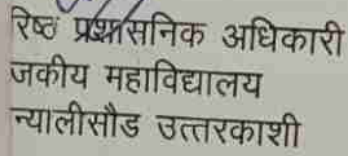 रिष्ठ प्रशासनिक अधिकारी
जकीय महाविद्यालय
न्यालीसौड उत्तरकाशी